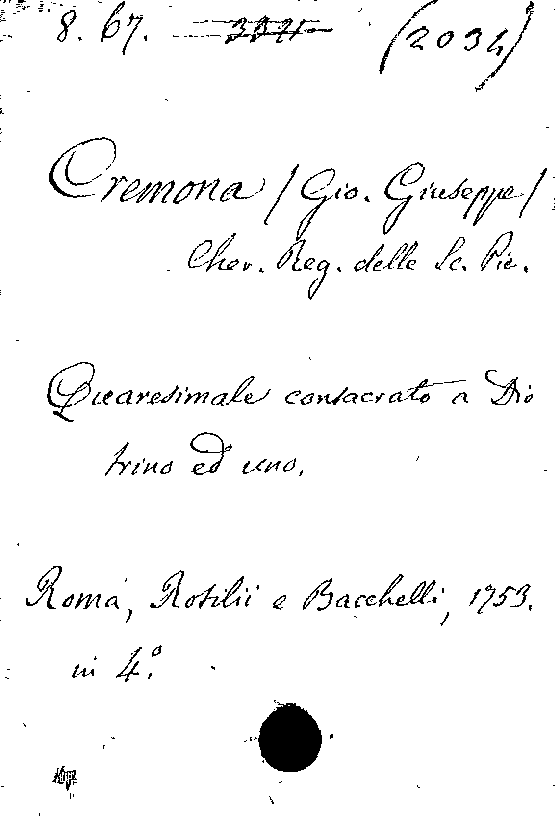 8. 67. (2034)
Cremona / Gio. Giuseppe /
Cher. Reg. delle Sc. Pie.
Quaresimale consacrato a Dio
trino ed uno.
Roma, Rosilii e Bacchelli, 1753.
in 4.º